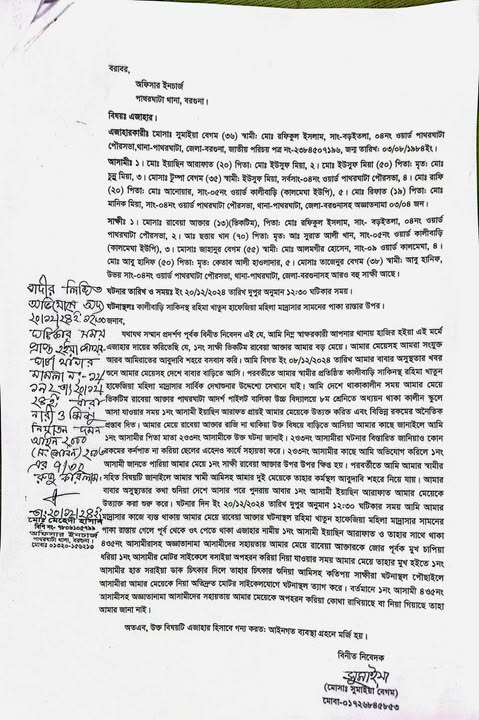 বরাবর,
অফিসার ইনচার্জ
পাথরঘাটা থানা, বরগুনা।
বিষয়ঃ এজাহার।
এজাহারকারীঃ মোসাঃ সুমাইয়া বেগম (৩৬) স্বামী: মোঃ রফিকুল ইসলাম, সাং-বড়ইতলা, ০৪নং ওয়ার্ড পাথরঘাটা
পৌরসভা,থানা-পাথরঘাটা, জেলা-বরগুনা, জাতীয় পরিচয় পত্র নং-২৩৮৪৫০৭১৯৬, জন্ম তারিখ: ০৩/০৮/১৯৮৪ইং।
আসামীঃ ১। মোঃ ইয়াছিন আরাফাত (২০) পিতা: মোঃ ইউসুফ মিয়া, ২। মোঃ ইউসুফ মিয়া (৫০) পিতা: মৃত: মোঃ
চুন্নু মিয়া, ৩। মোসাঃ টুম্পা বেগম (৩৫) স্বামী: মোঃ ইউসুফ মিয়া, সর্বসাং-০৪নং ওয়ার্ড পাথরঘাটা পৌরসভা, ৪। মোঃ রাফি
(২০) পিতা: মোঃ আনোয়ার, সাং-০৫নং ওয়ার্ড কালীবাড়ি (কালমেঘা ইউপি), ৫। মোঃ রিফাত (১৯) পিতা: মোঃ
মানিক মিয়া, সাং-০৪নং ওয়ার্ড পাথরঘাটা পৌরসভা, থানা-পাথরঘাটা, জেলা-বরগুনাসহ অজ্ঞাতনামা ০৩/০৪ জন।
সাক্ষীঃ ১। মোসাঃ রাবেয়া আক্তার (১৩)(ভিকটিম), পিতা: মোঃ রফিকুল ইসলাম, সাং- বড়ইতলা, ০৪নং ওয়ার্ড
পাথরঘাটা পৌরসভা, ২। আঃ ছত্তার খান (৭০) পিতা: মৃত: আঃ সুরাত আলী খান, সাং-০৫নং ওয়ার্ড কালীবাড়ি
(কালমেঘা ইউপি), ৩। মোসাঃ জাহানুর বেগম (৫৫) স্বামী: মোঃ আলমগীর হোসেন, সাং-০৯ ওয়ার্ড কালমেঘা, ৪।
মোঃ আবু হানিফ (৫০) পিতা: মৃত: কেতাব আলী হাওলাদার, ৫। মোসাঃ তাজেনুর বেগম (৩৮) স্বামী: আবু হানিফ,
উভয় সাং-০৪নং ওয়ার্ড পাথরঘাটা পৌরসভা, থানা-পাথরঘাটা, জেলা-বরগুনাসহ আরও বহু সাক্ষী আছে।
ঘটনার তারিখ ও সময়ঃ ইং ২০/১২/২৪ তারিখ দুপুর অনুমান ১২:৩০ ঘটিকার সময়।
ঘটনাস্থলঃ কালীবাড়ি সাকিনস্থ রহিমা খাতুন হাফেজিয়া মহিলা মাদ্রাসার সামনের পাকা রাস্তার উপর।
জনাব,
যথাযথ সম্মান প্রদর্শন পূর্বক বিনীত নিবেদন এই যে, আমি নিম্ন স্বাক্ষরকারী আপনার থানায় হাজির হইয়া এই মর্মে
এজাহার দায়ের করিতেছি যে, ১নং সাক্ষী ভিকটিম রাবেয়া আক্তার আমার বড় মেয়ে। আমার মেয়েসহ আমরা সংযুক্ত
আরব আমিরাতের আবুদাবি শহরে বসবাস করি। আমি বিগত ইং ০৮/১২/২০২৪ তারিখ আমার বাবার অসুস্থতার খবর
শুনে আমার মেয়েসহ দেশে বাবার বাড়িতে আসি। পরবর্তীতে আমার স্বামীর প্রতিষ্ঠিত কালীবাড়ি সাকিনস্থ রহিমা খাতুন
হাফেজিয়া মহিলা মাদ্রাসার সার্বিক দেখাশুনার উদ্দেশ্যে সেখানে যাই। আমি দেশে থাকাকালীন সময় আমার মেয়ে
ভিকটিম রাবেয়া আক্তার পাথরঘাটা আদর্শ পাইলট বালিকা উচ্চ বিদ্যালয়ে ৮ম শ্রেনিতে অধ্যায়ন থাকা কালীন স্কুলে
আসা যাওয়ার সময় ১নং আসামী ইয়াছিন আরাফাত প্রায়ই আমার মেয়েকে উত্যক্ত করিত এবং বিভিন্ন রকমের অনৈতিক
প্রস্তাব দিত। আমার মেয়ে রাবেয়া আক্তার রাজি না থাকিয়া উক্ত বিষয়ে বাড়িতে আসিয়া আমার কাছে জানাইলে আমি
১নং আসামীর পিতা মাতা ২৩নং আসামীকে উক্ত ঘটনা জানাই। ২৩নং আসামীরা ঘটনার বিস্তারিত জানিয়াও কোন
রকমের কর্নপাত না করিয়া ছেলের এহেনও কার্যে সহায়তা করে। ২৩নং আসামীর কাছে আমি অভিযোগ করিলে ১নং
আসামী জানতে পারিয়া আমার মেয়ে ১নং সাক্ষী রাবেয়া আক্তার উপর উপর ক্ষিপ্ত হয়। পরবর্তীতে আমি আমার স্বামীর
সহিত বিষয়টি জানাইলে আমার স্বামী আমিসহ আমার দুই মেয়েকে তাহার কর্মস্থল আবুদাবি শহরে নিয়ে যায়। আমার
বাবার অসুস্থতার কথা শুনিয়া দেশে আসার পরে পুনরায় আবার ১নং আসামী ইয়াছিন আরাফাত আমার মেয়েকে
উত্যক্ত করা শুরু করে। ঘটনার দিন ইং ২০/১২/২০২৪ তারিখ দুপুর অনুমান ১২:৩০ ঘটিকার সময় আমি আমার
মাদ্রাসার কাজে ব্যস্ত থাকায় আমার মেয়ে রাবেয়া আক্তার ঘটনাস্থল রহিমা খাতুন হাফেজিয়া মহিলা মাদ্রাসার সামনের
পাকা রাস্তায় গেলে পূর্ব থেকে ওৎ পেতে থাকা এজাহার নামীয় ১নং আসামী ইয়াছিন আরাফাত ও তাহার সাথে থাকা
৪৫নং আসামীরাসহ অজ্ঞাতনামা আসামীদের সহায়তায় আমার মেয়ে রাবেয়া আক্তারকে জোর পূর্বক মুখ চাপিয়া
ধরিয়া ১নং আসামীর মোটর সাইকেলে বসাইয়া অপহরন করিয়া নিয়া যাওয়ার সময় আমার মেয়ে তাহার মুখ হইতে ১নং
আসামীর হাত সরাইয়া ডাক চিৎকার দিলে তাহার চিৎকার শুনিয়া আমিসহ কতিপয় সাক্ষীরা ঘটনাস্থল পৌছাইলে
আসামীরা আমার মেয়েকে নিয়া অতিদ্রুত মোটর সাইকেলযোগে ঘটনাস্থল ত্যাগ করে। বর্তমানে ১নং আসামী ৪৫নং
আসামীসহ অজ্ঞাতনামা আসামীদের সহায়তায় আমার মেয়েকে অপহরন করিয়া কোথা রাখিয়াছে বা নিয়া গিয়াছে তাহা
আমার জানা নাই।
অতএব, উক্ত বিষয়টি এজাহার হিসাবে গন্য করত: আইনগত ব্যবস্থা গ্রহনে মর্জি হয়।
বিনীত নিবেদক
সুমাইয়া
(মোসাঃ সুমাইয়া বেগম)
মোবা-০১৭২৬৮৪৫৮৫৩
বাদীর লিখিত
অভিযোগ অদ্য
২০/১২/২৪ইং
ঘটিকার সময়
প্রাপ্ত হইয়া
থানার
মামলা নং-
নারী ও শিশু
নির্যাতন দমন
আইন ২০০০
এর ৭/৩০
রুজু করিলাম।
মোঃ মেহেদী হাসান
অফিসার ইনচার্জ
পাথরঘাটা থানা, বরগুনা।